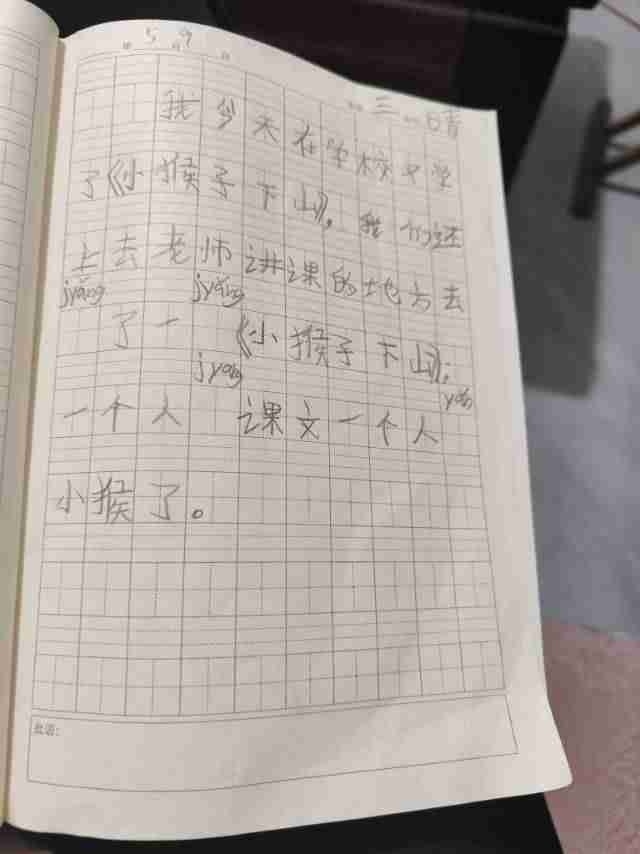 5 9
三 晴
我今天在学校中学
了《小猴子下山》，我们还
上去老师讲课的地方去
jyǎng jyǎng
了一 《小猴子下山》；
jyǎng yǎn
一个人 课文一个人
小猴了。
批语：